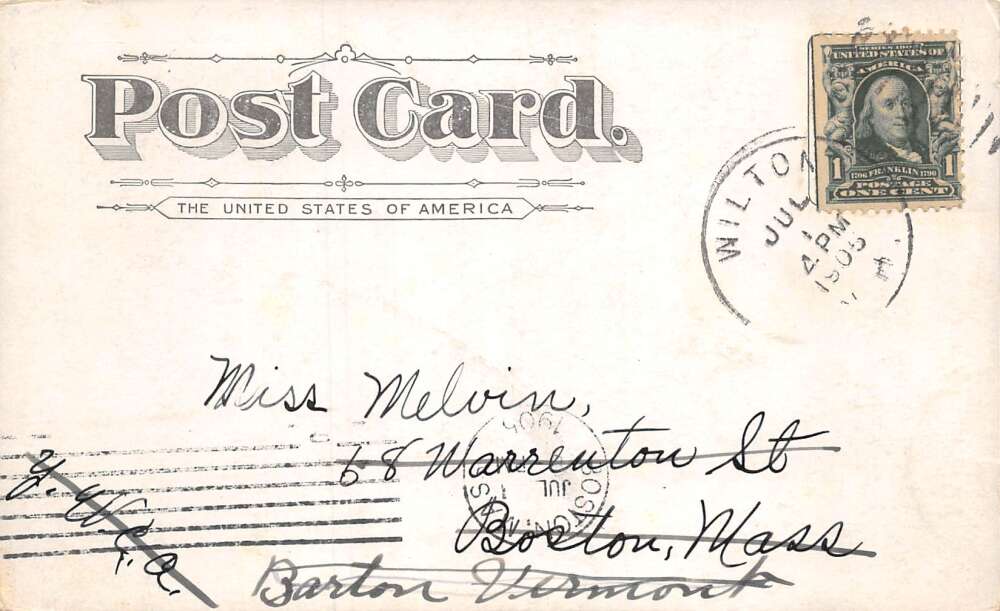 Post Card.
THE UNITED STATES OF AMERICA
SERIES 1902
UNITED STATES OF
AMERICA
1706 FRANKLIN 1790
1 POSTAGE 1
ONE CENT
WILTON N.H.
JUL
1
4-PM
1905
Miss Melvin,
68 Warrenton St
Boston, Mass
Y.W.C.a.
Barton Vermont
BOSTON, MASS
JUL 1
1905